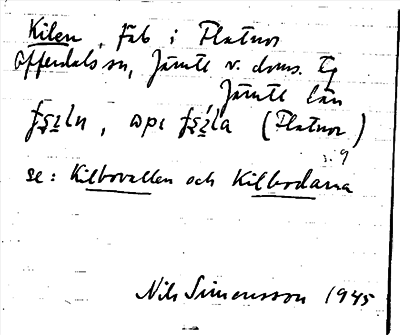 Kilen, Fäb i Flatnor
Offerdals sn, Jämtl v. doms. tg
Jämtl län
(Flatnor)
s. 9
se: Kilbovallen och Kilbodarna
Nils Simonsson 1945